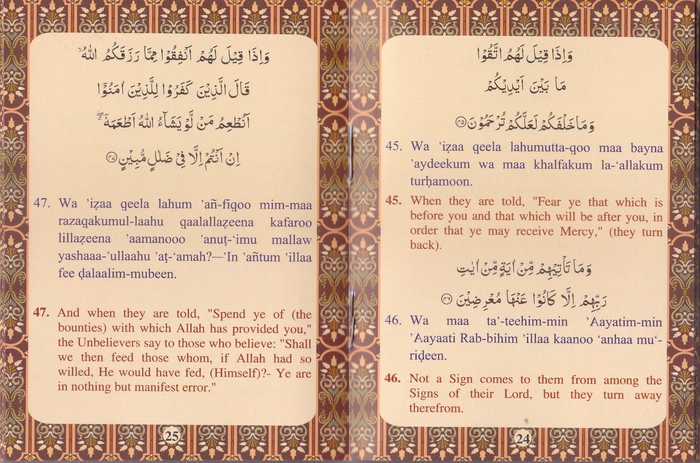 وَاِذَا قِيْلَ لَهُمُ اتَّقُوْا
مَا بَيْنَ اَيْدِيْكُمْ
وَمَا خَلْفَكُمْ لَعَلَّكُمْ تُرْحَمُوْنَ ۝٤٥
45. Wa ’iẓaa qeela lahumutta-qoo maa bayna
’aydeekum wa maa khalfakum la-‘allakum
turḥamoon.
45. When they are told, "Fear ye that which is
before you and that which will be after you, in
order that ye may receive Mercy," (they turn
back).
وَمَا تَأْتِيْهِمْ مِّنْ اٰيَةٍ مِّنْ اٰيٰتِ
رَبِّهِمْ اِلَّا كَانُوْا عَنْهَا مُعْرِضِيْنَ ۝٤٦
46. Wa maa ta’-teehim-min ’Aayatim-min
’Aayaati Rab-bihim ’illaa kaanoo ‘anhaa mu‘-
riḍeen.
46. Not a Sign comes to them from among the
Signs of their Lord, but they turn away
therefrom.
24
وَاِذَا قِيْلَ لَهُمْ اَنْفِقُوْا مِمَّا رَزَقَكُمُ اللّٰهُ ۙ
قَالَ الَّذِيْنَ كَفَرُوْا لِلَّذِيْنَ اٰمَنُوْٓا
اَنُطْعِمُ مَنْ لَّوْ يَشَآءُ اللّٰهُ اَطْعَمَهٗٓ ۖ
اِنْ اَنْتُمْ اِلَّا فِيْ ضَلٰلٍ مُّبِيْنٍ ۝٤٧
47. Wa ’iẓaa qeela lahum ’añ-fiqoo mim-maa
razaqakumul-laahu qaalallaẓeena kafaroo
lillaẓeena ’aamanooo ’anuṭ-‘imu mallaw
yashaaa-’ullaahu ’aṭ-‘amah?—’In ’añtum ’illaa
fee ḍalaalim-mubeen.
47. And when they are told, "Spend ye of (the
bounties) with which Allah has provided you,"
the Unbelievers say to those who believe: "Shall
we then feed those whom, if Allah had so
willed, He would have fed, (Himself)?- Ye are
in nothing but manifest error."
25